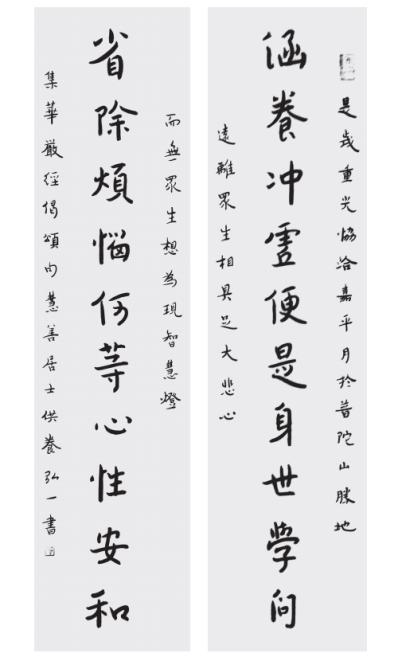 是歲重光協洽嘉平月於普陀山勝地
涵養冲虛便是身世學問
遠離眾生相具足大悲心
而無眾生想為現智慧燈
省除煩惱何等心性安和
集華嚴經偈頌句慧善居士供養弘一書